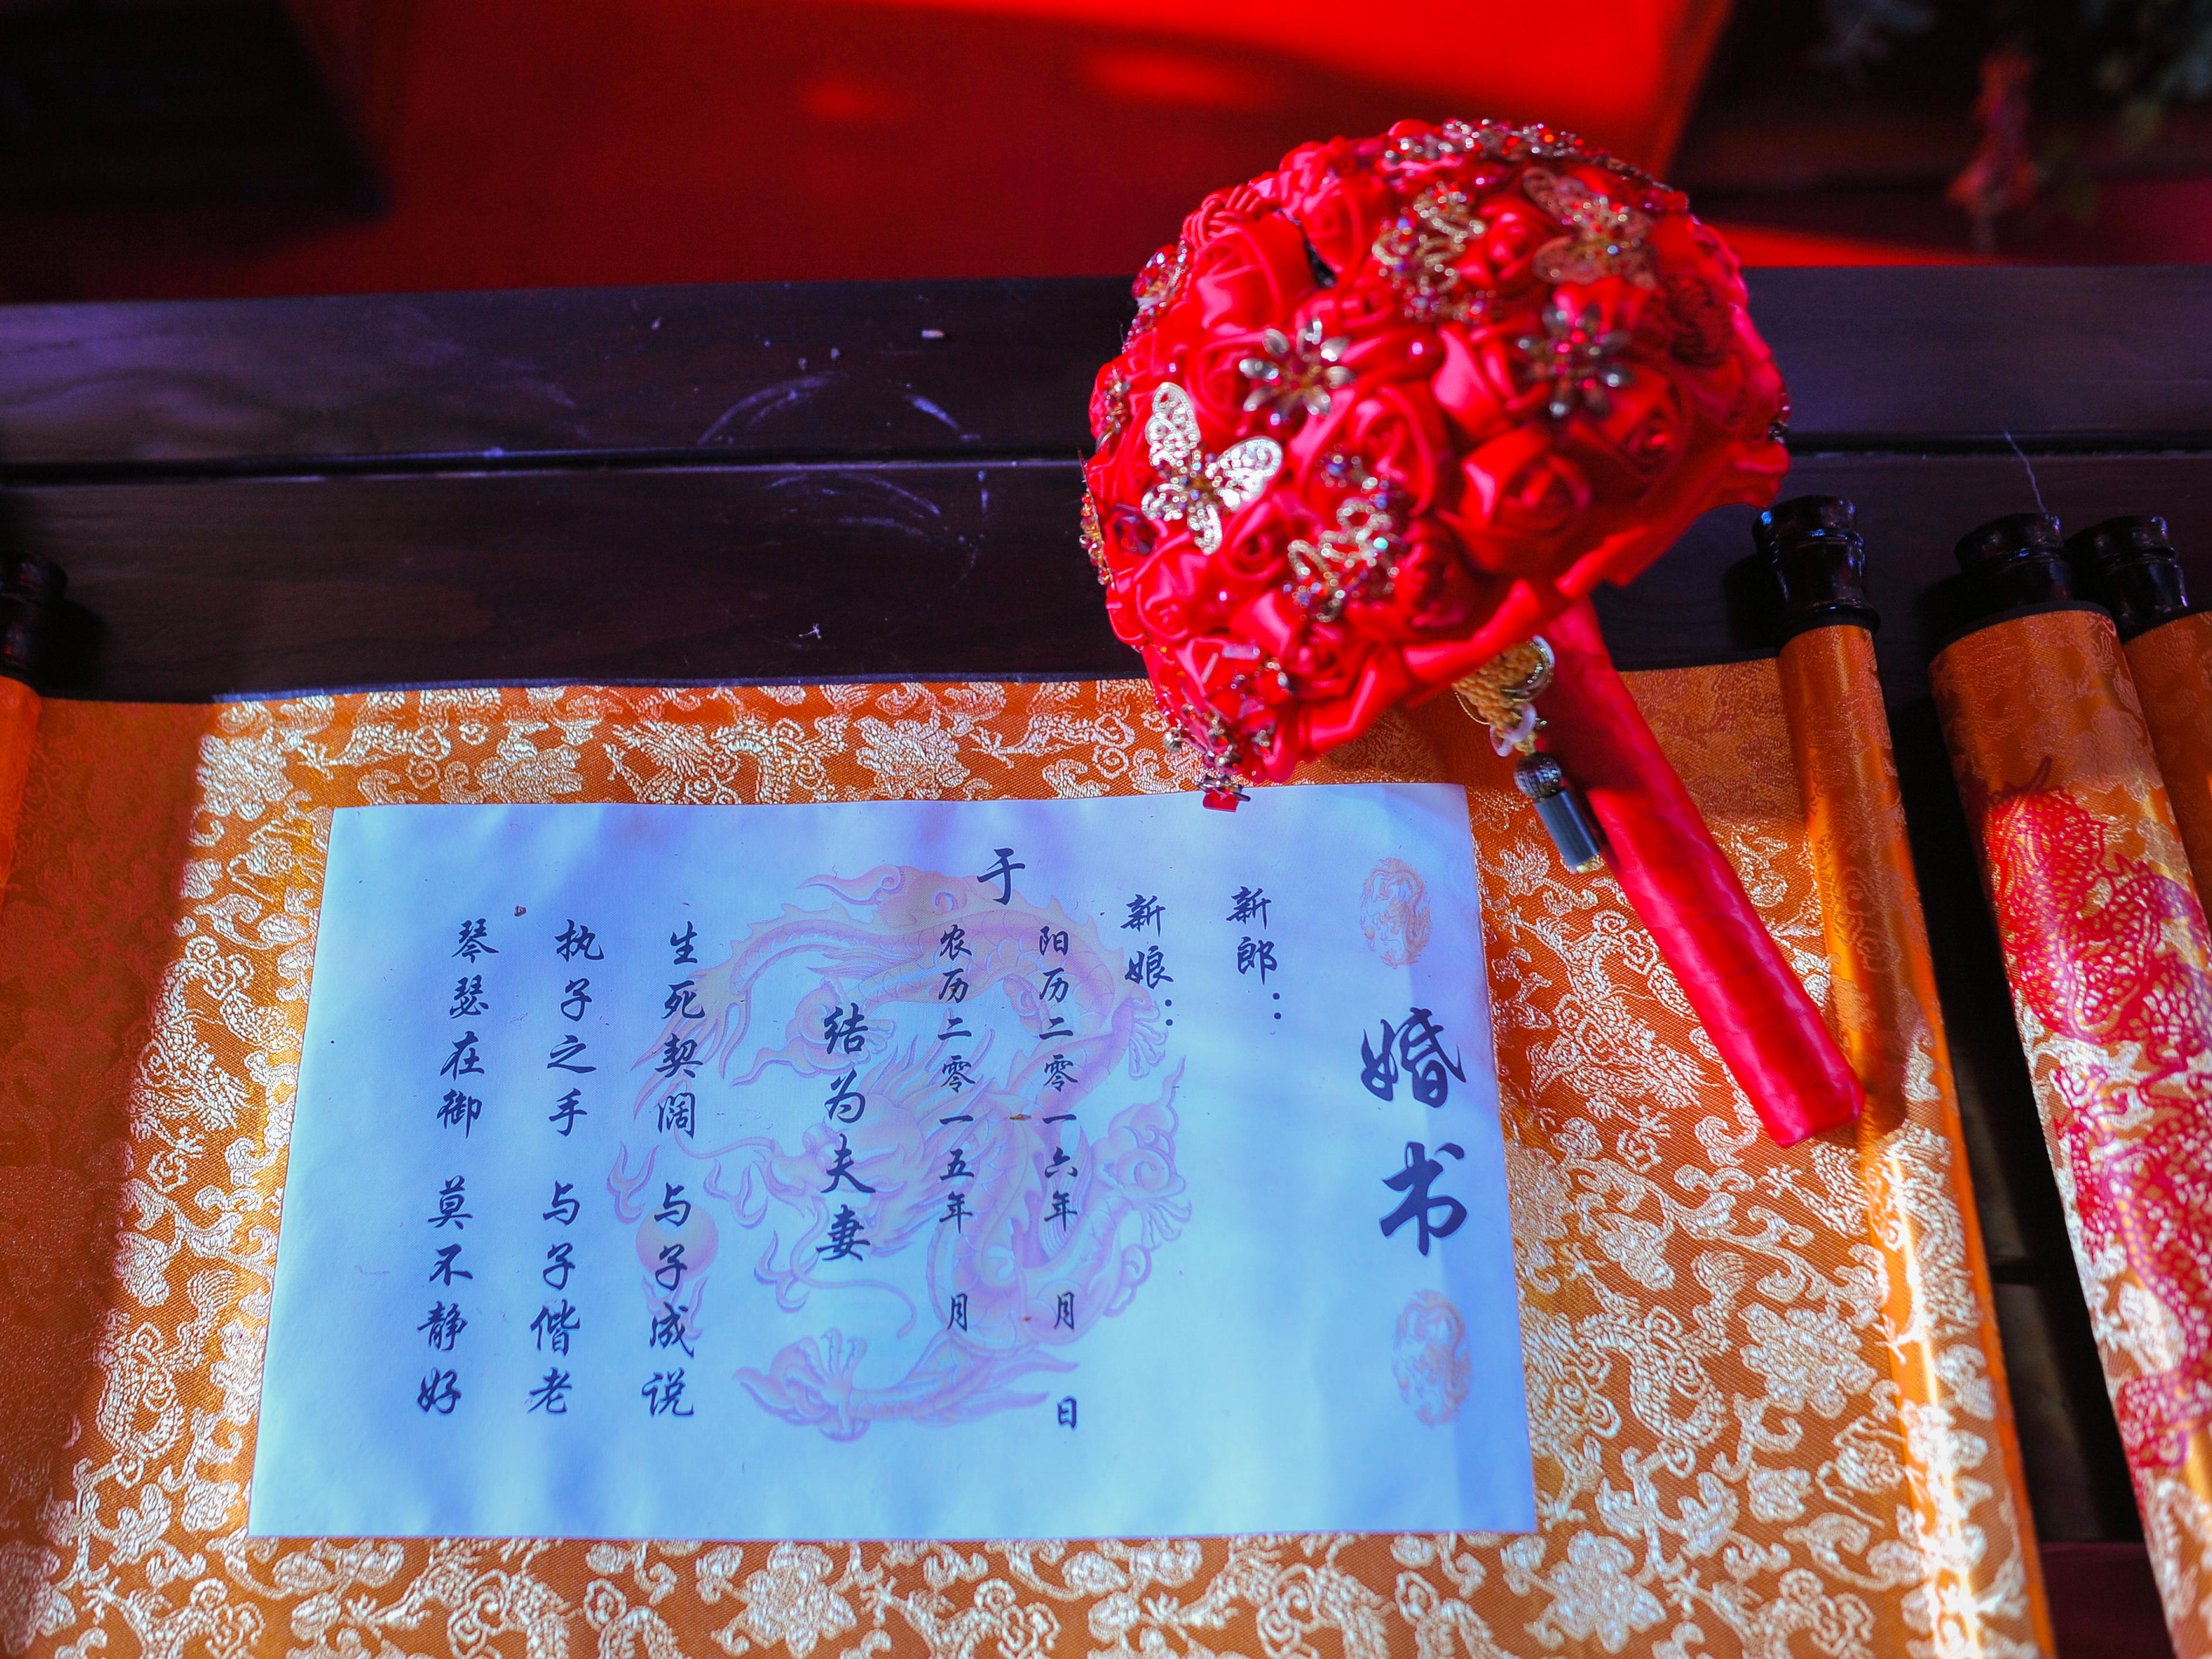 婚书
新郎：
新娘：
于
阳历二零一六年 月 日
农历二零一五年 月
结为夫妻
生死契阔 与子成说
执子之手 与子偕老
琴瑟在御 莫不静好